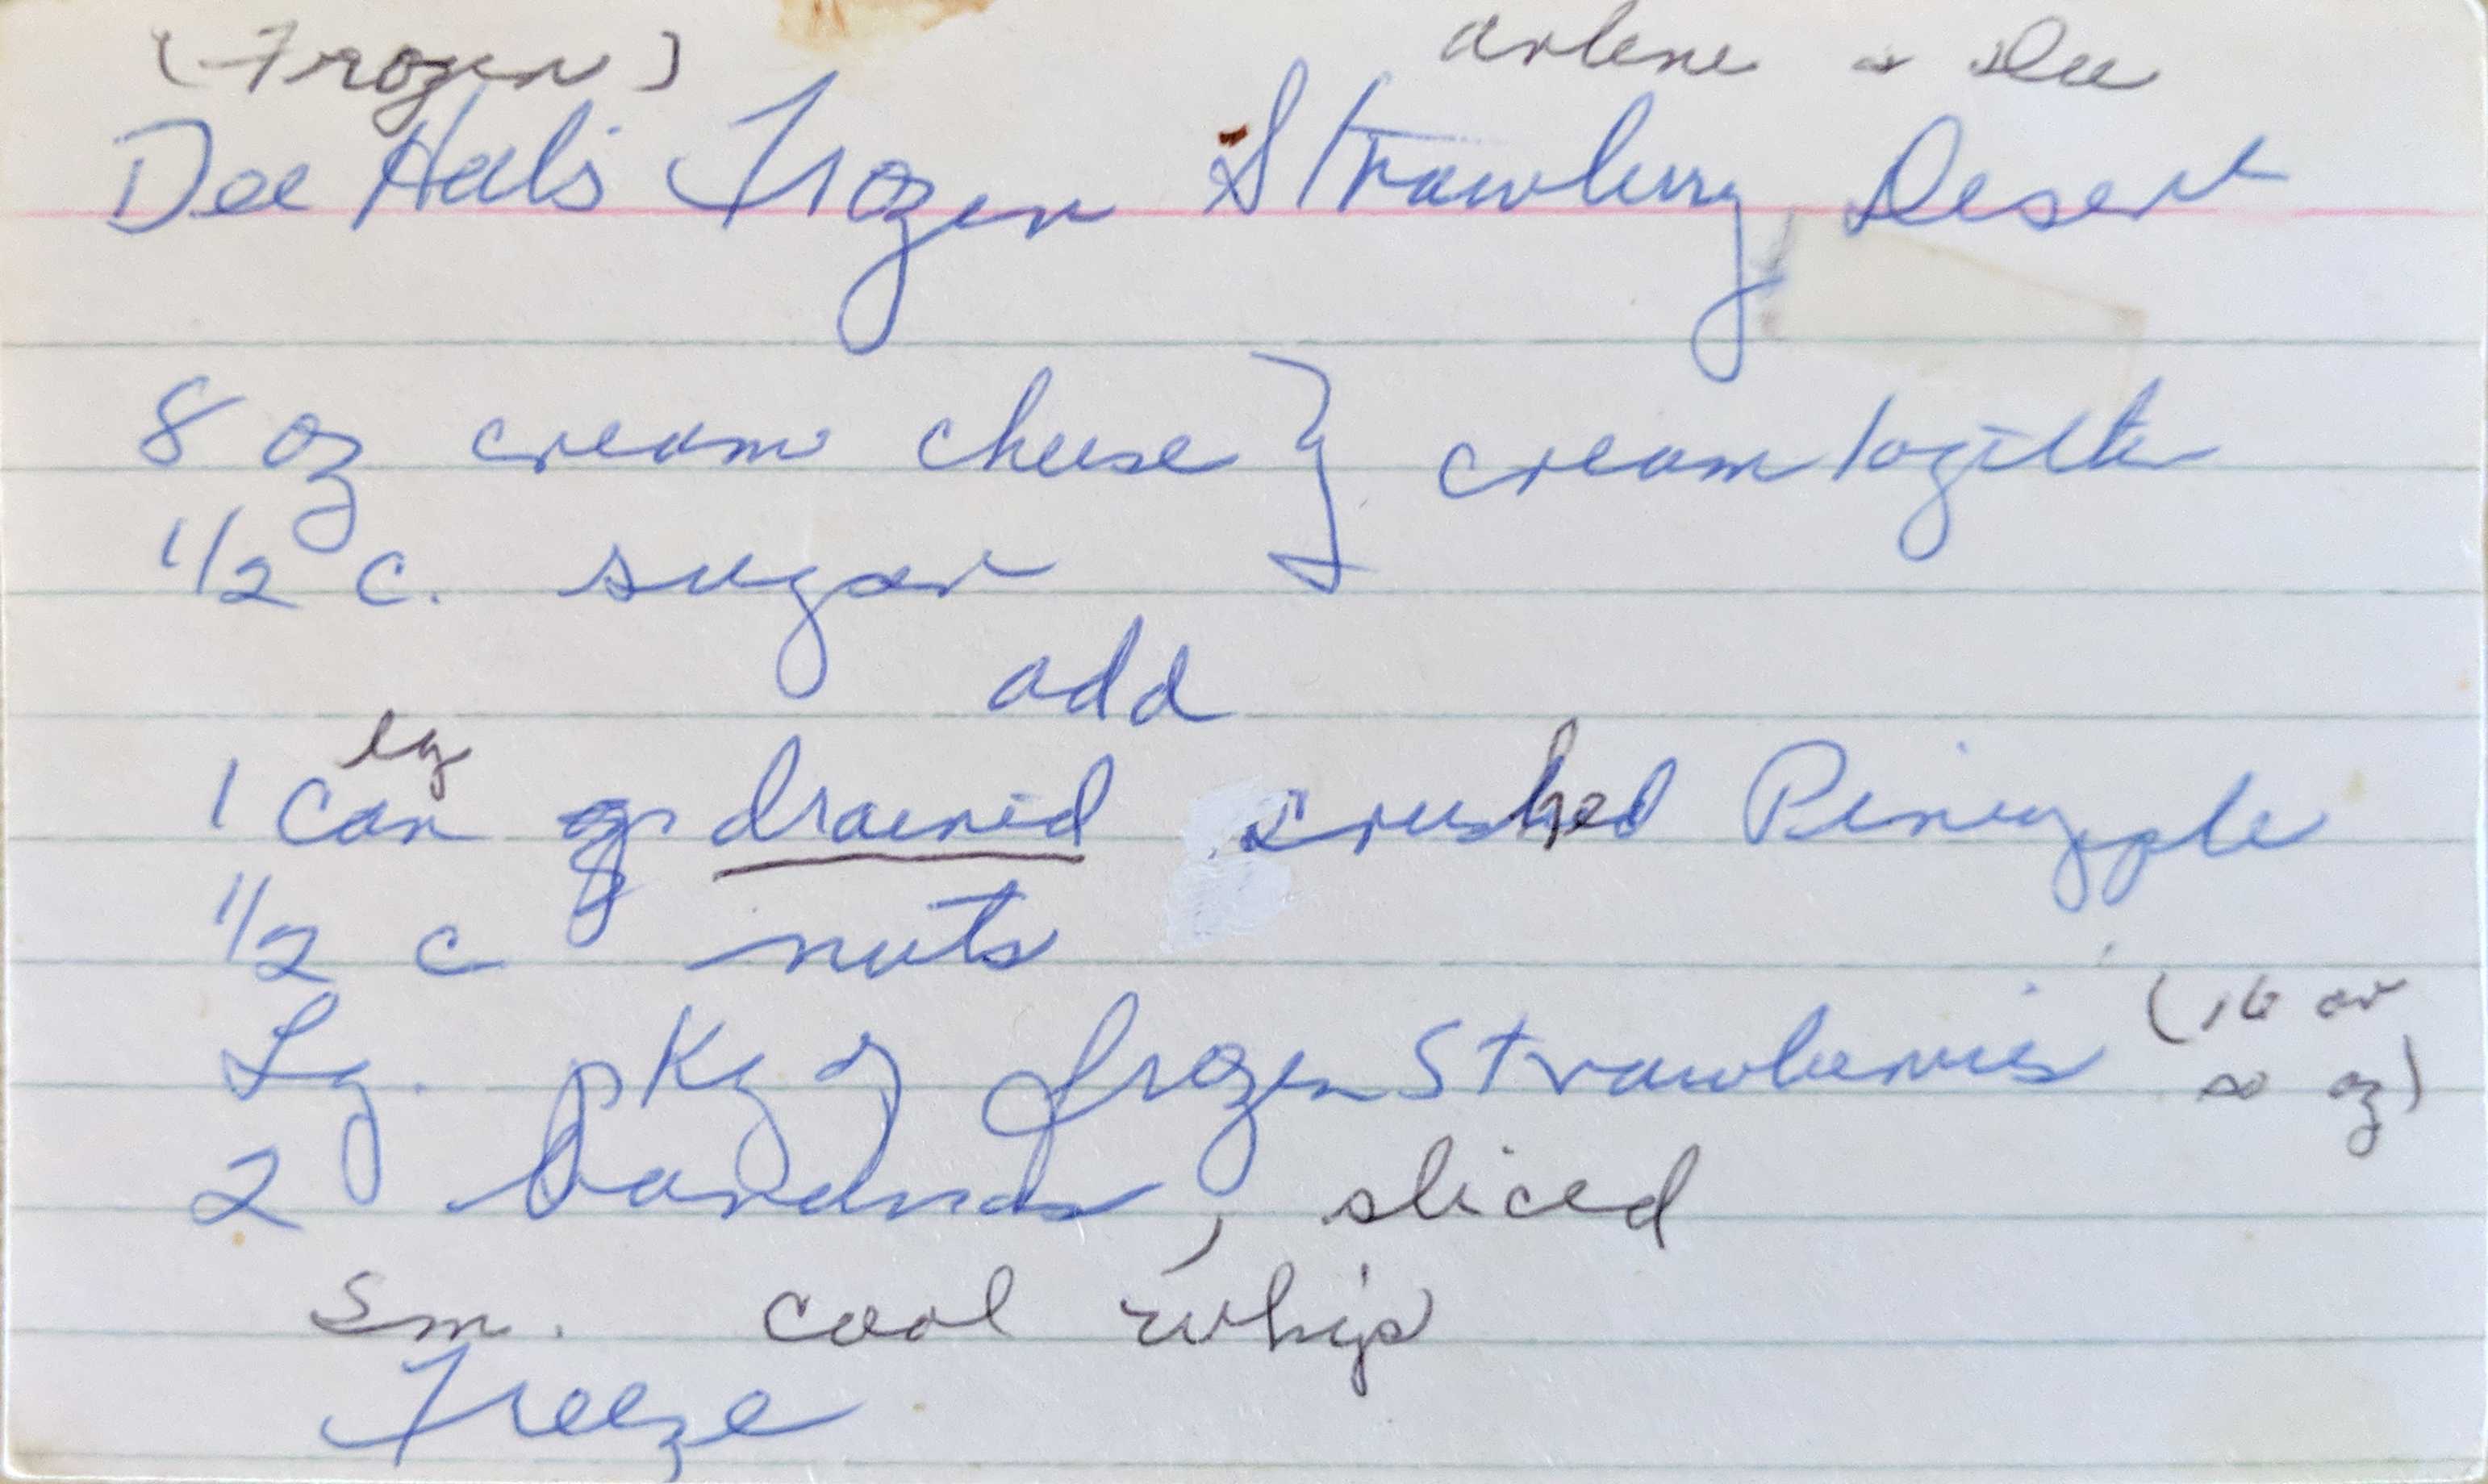 (Frozen) Arlene & Dee
Dee Hal's Frozen Strawberry Desert
8 oz cream cheese } cream together
1/2 c. sugar
add
lg
1 can of drained crushed Pineapple
1/2 c nuts
Lg. pkg of frozen Strawberries (16 or
oz)
2 bananas, sliced
Sm. cool whip
Freeze